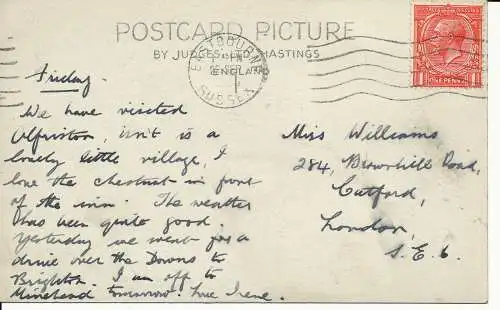 POSTCARD PICTURE
BY JUDGES LTD HASTINGS
ENGLAND
EASTBOURNE
SUSSEX
ONE PENNY
Friday.
We have visited
Alfriston, isn't is a
lovely little village, I
love the chestnut in front
of the inn. The weather
has been quite good.
Yesterday we went for a
drive over the Downs to
Brighton. I am off to
Minehead tomorrow. Love Irene.
Miss Williams
284, Brownhill Road,
Catford,
London,
S.E.6.